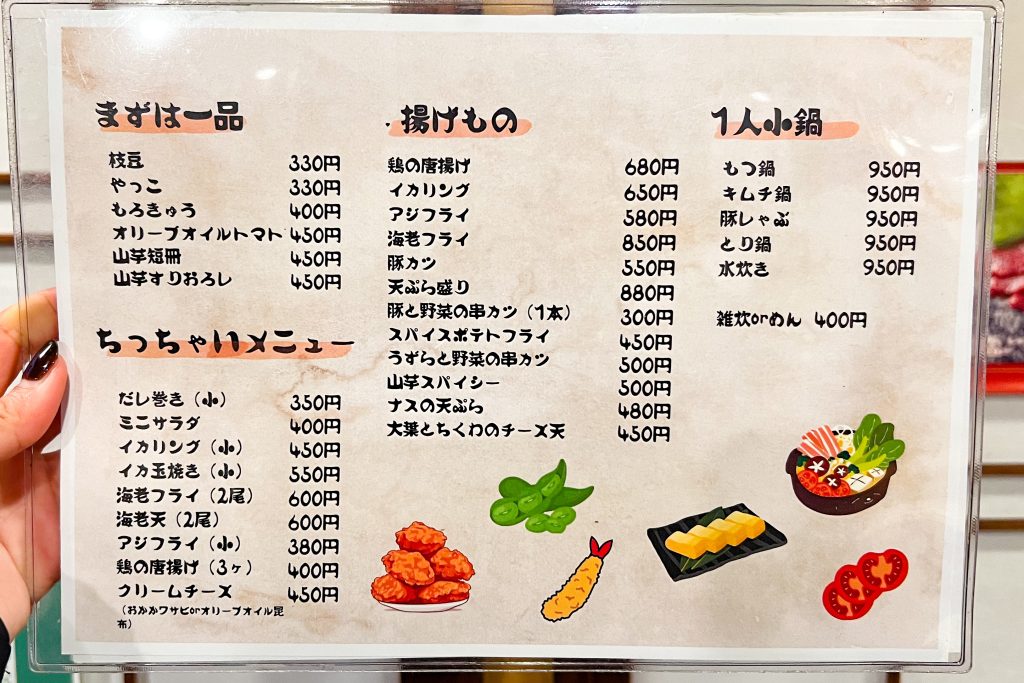 まずは一品
枝豆 330円
やっこ 330円
もろきゅう 400円
オリーブオイルトマト 450円
山芋短冊 450円
山芋すりおろし 450円
ちっちゃいメニュー
だし巻き（小） 350円
ミニサラダ 400円
イカリング（小） 450円
イカ玉焼き（小） 550円
海老フライ（2尾） 600円
海老天（2尾） 600円
アジフライ（小） 380円
鶏の唐揚げ（3ヶ） 400円
クリームチーズ 450円
（おかかワサビorオリーブオイル昆
布）
.揚げもの
鶏の唐揚げ 680円
イカリング 650円
アジフライ 580円
海老フライ 850円
豚カツ 550円
天ぷら盛り 880円
豚と野菜の串カツ（1本） 300円
スパイスポテトフライ 450円
うずらと野菜の串カツ 500円
山芋スパイシー 500円
ナスの天ぷら 480円
大葉とちくわのチーズ天 450円
1人小鍋
もつ鍋 950円
キムチ鍋 950円
豚しゃぶ 950円
とり鍋 950円
水炊き 950円
雑炊orめん 400円